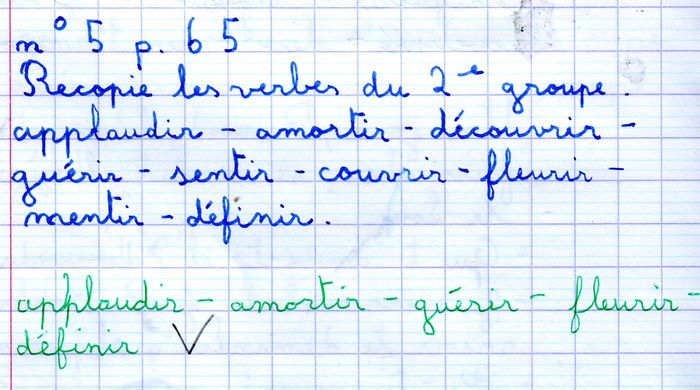 n° 5 p. 65
Recopie les verbes du 2e groupe.
applaudir - amortir - découvrir -
guérir - sentir - couvrir - fleurir -
mentir - définir.
applaudir - amortir - guérir - fleurir -
définir